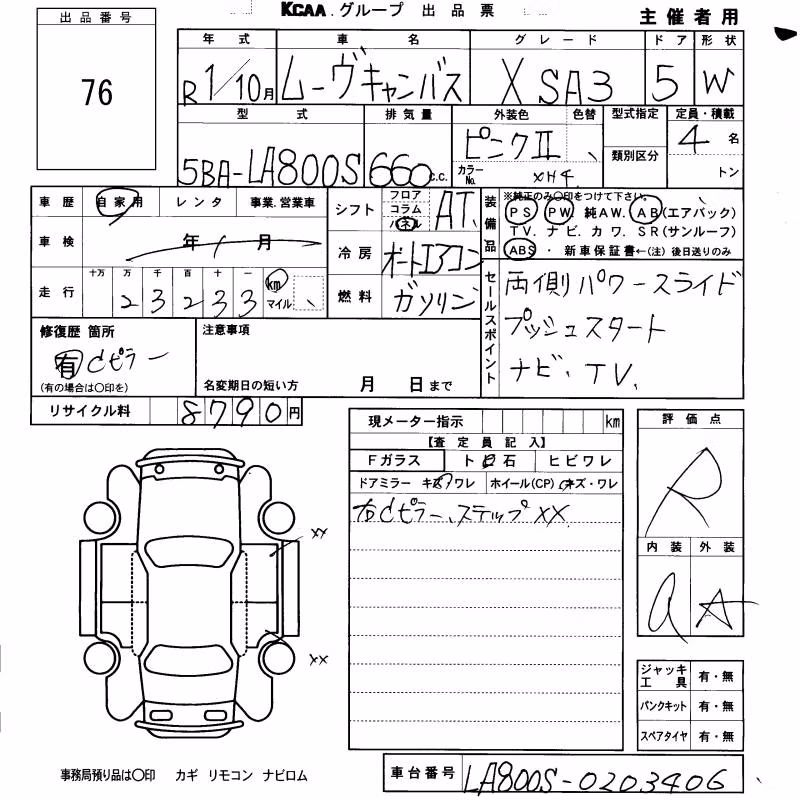 KCAA.グループ 出品票
主催者用
出品番号
76
年式 車名 グレード ドア 形状
R1/10月 ムーヴキャンバス X SA3 5 W
型式 排気量 外装色 色替 型式指定 定員・積載
5BA-LA800S 660c.c. ピンクⅡ 類別区分 4名
カラーNo. XH4 トン
車歴 自家用 レンタ 事業.営業車
シフト フロア コラム パネル AT
装備品 ※純正のみ○印をつけて下さい。
PS PW 純AW. AB(エアバック)
TV. ナビ. カワ. SR(サンルーフ)
ABS ・ 新車保証書←(注)後日送りのみ
車検 年 月
冷房 オートエアコン
走行 十万 万 千 百 十 一 km マイル
23233
燃料 ガソリン
セールスポイント
両側パワースライド
プッシュスタート
ナビ、TV、
修復歴 箇所
有 Cピラー
(有の場合は○印を)
注意事項
名変期日の短い方 月 日まで
リサイクル料 8790円
現メーター指示 km
【査定員記入】
Fガラス ト石 ヒビワレ
ドアミラー キズ ワレ ホイール(CP) キズ・ワレ
右Cピラー、ステップXX
評価点
R
内装 外装
a A
XX
XX
ジャッキ工具 有・無
パンクキット 有・無
スペアタイヤ 有・無
事務局預り品は○印 カギ リモコン ナビロム
車台番号 LA800S-0203406